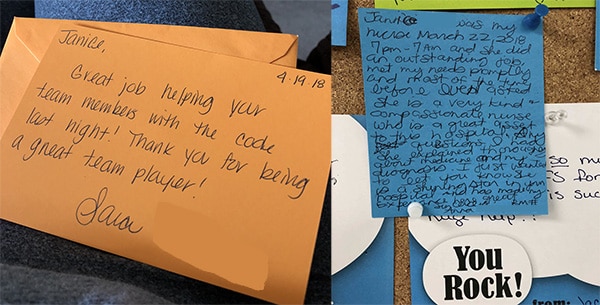 Janice,
4-19-18
Great job helping your
team members with the code
last night! Thank you for being
a great team player!
Sara
Janice was my
nurse March 22, 2018
7pm-7am and she did
an outstanding job
met my needs promptly
and most of the time
before I even asked
She is a very kind &
compassionate nurse
who is a great asset
to the hospital. Any
questions I had
she explained
about medicine and my
diagnosis
great you know she
is a shining star in ur
hospital and has
You
Rock!
so
is suc
from: